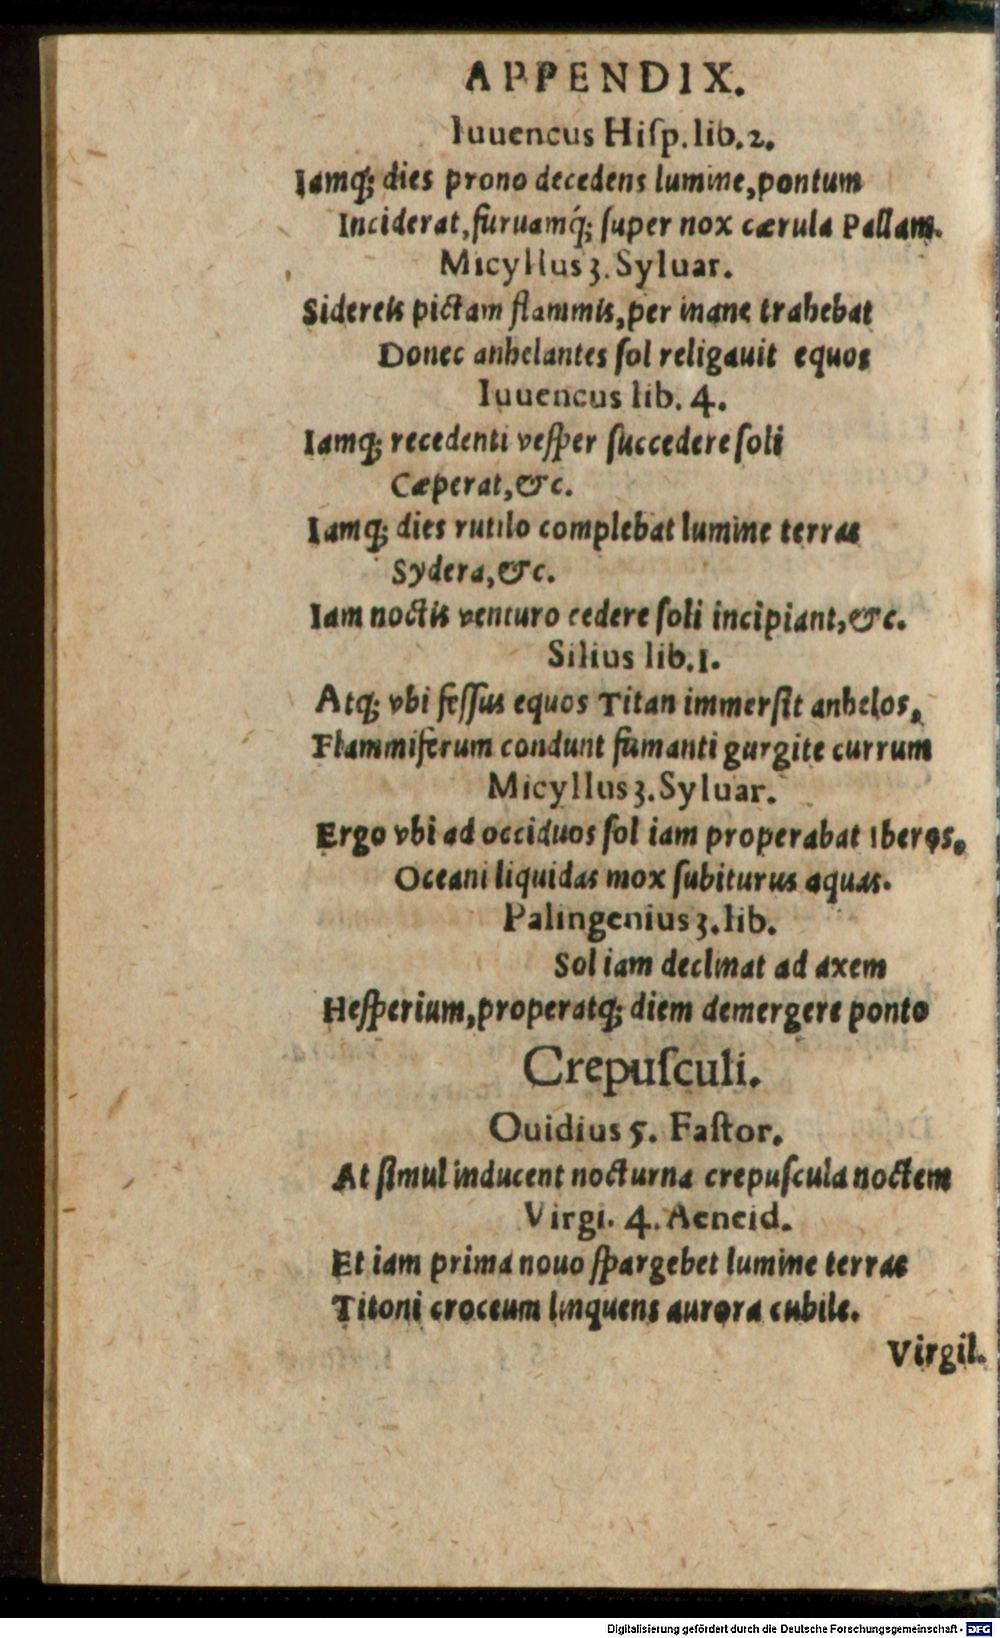 APPENDIX.
Iuuencus Hiſp. lib. 2.
Iamq́; dies prono decedens lumine, pontum
Inciderat, furuamq́; ſuper nox cærula Pallam.
Micyllus 3. Syluar.
Sidereis pictam flammis, per inane trahebat
Donec anhelantes ſol religauit equos
Iuuencus lib. 4.
Iamq; recedenti veſper ſuccedere ſoli
Cæperat, &c.
Iamq; dies rutilo complebat lumine terras
Sydera, &c.
Iam noctis venturo cedere ſoli incipiant, &c.
Silius lib. 1.
Atq; vbi feſſus equos Titan immerſit anhelos,
Flammiferum condunt fumanti gurgite currum
Micyllus 3. Syluar.
Ergo vbi ad occiduos ſol iam properabat Iberos,
Oceani liquidas mox ſubiturus aquas.
Palingenius 3. lib.
Sol iam declinat ad axem
Heſperium, properatq; diem demergere ponto
Crepuſculi.
Ouidius 5. Faſtor.
At ſimul inducent nocturna crepuſcula noctem
Virgi. 4. Aeneid.
Et iam prima nouo ſpargebet lumine terras
Titoni croceum linquens aurora cubile.
Virgil.
Digitalisierung gefördert durch die Deutsche Forschungsgemeinschaft - DFG